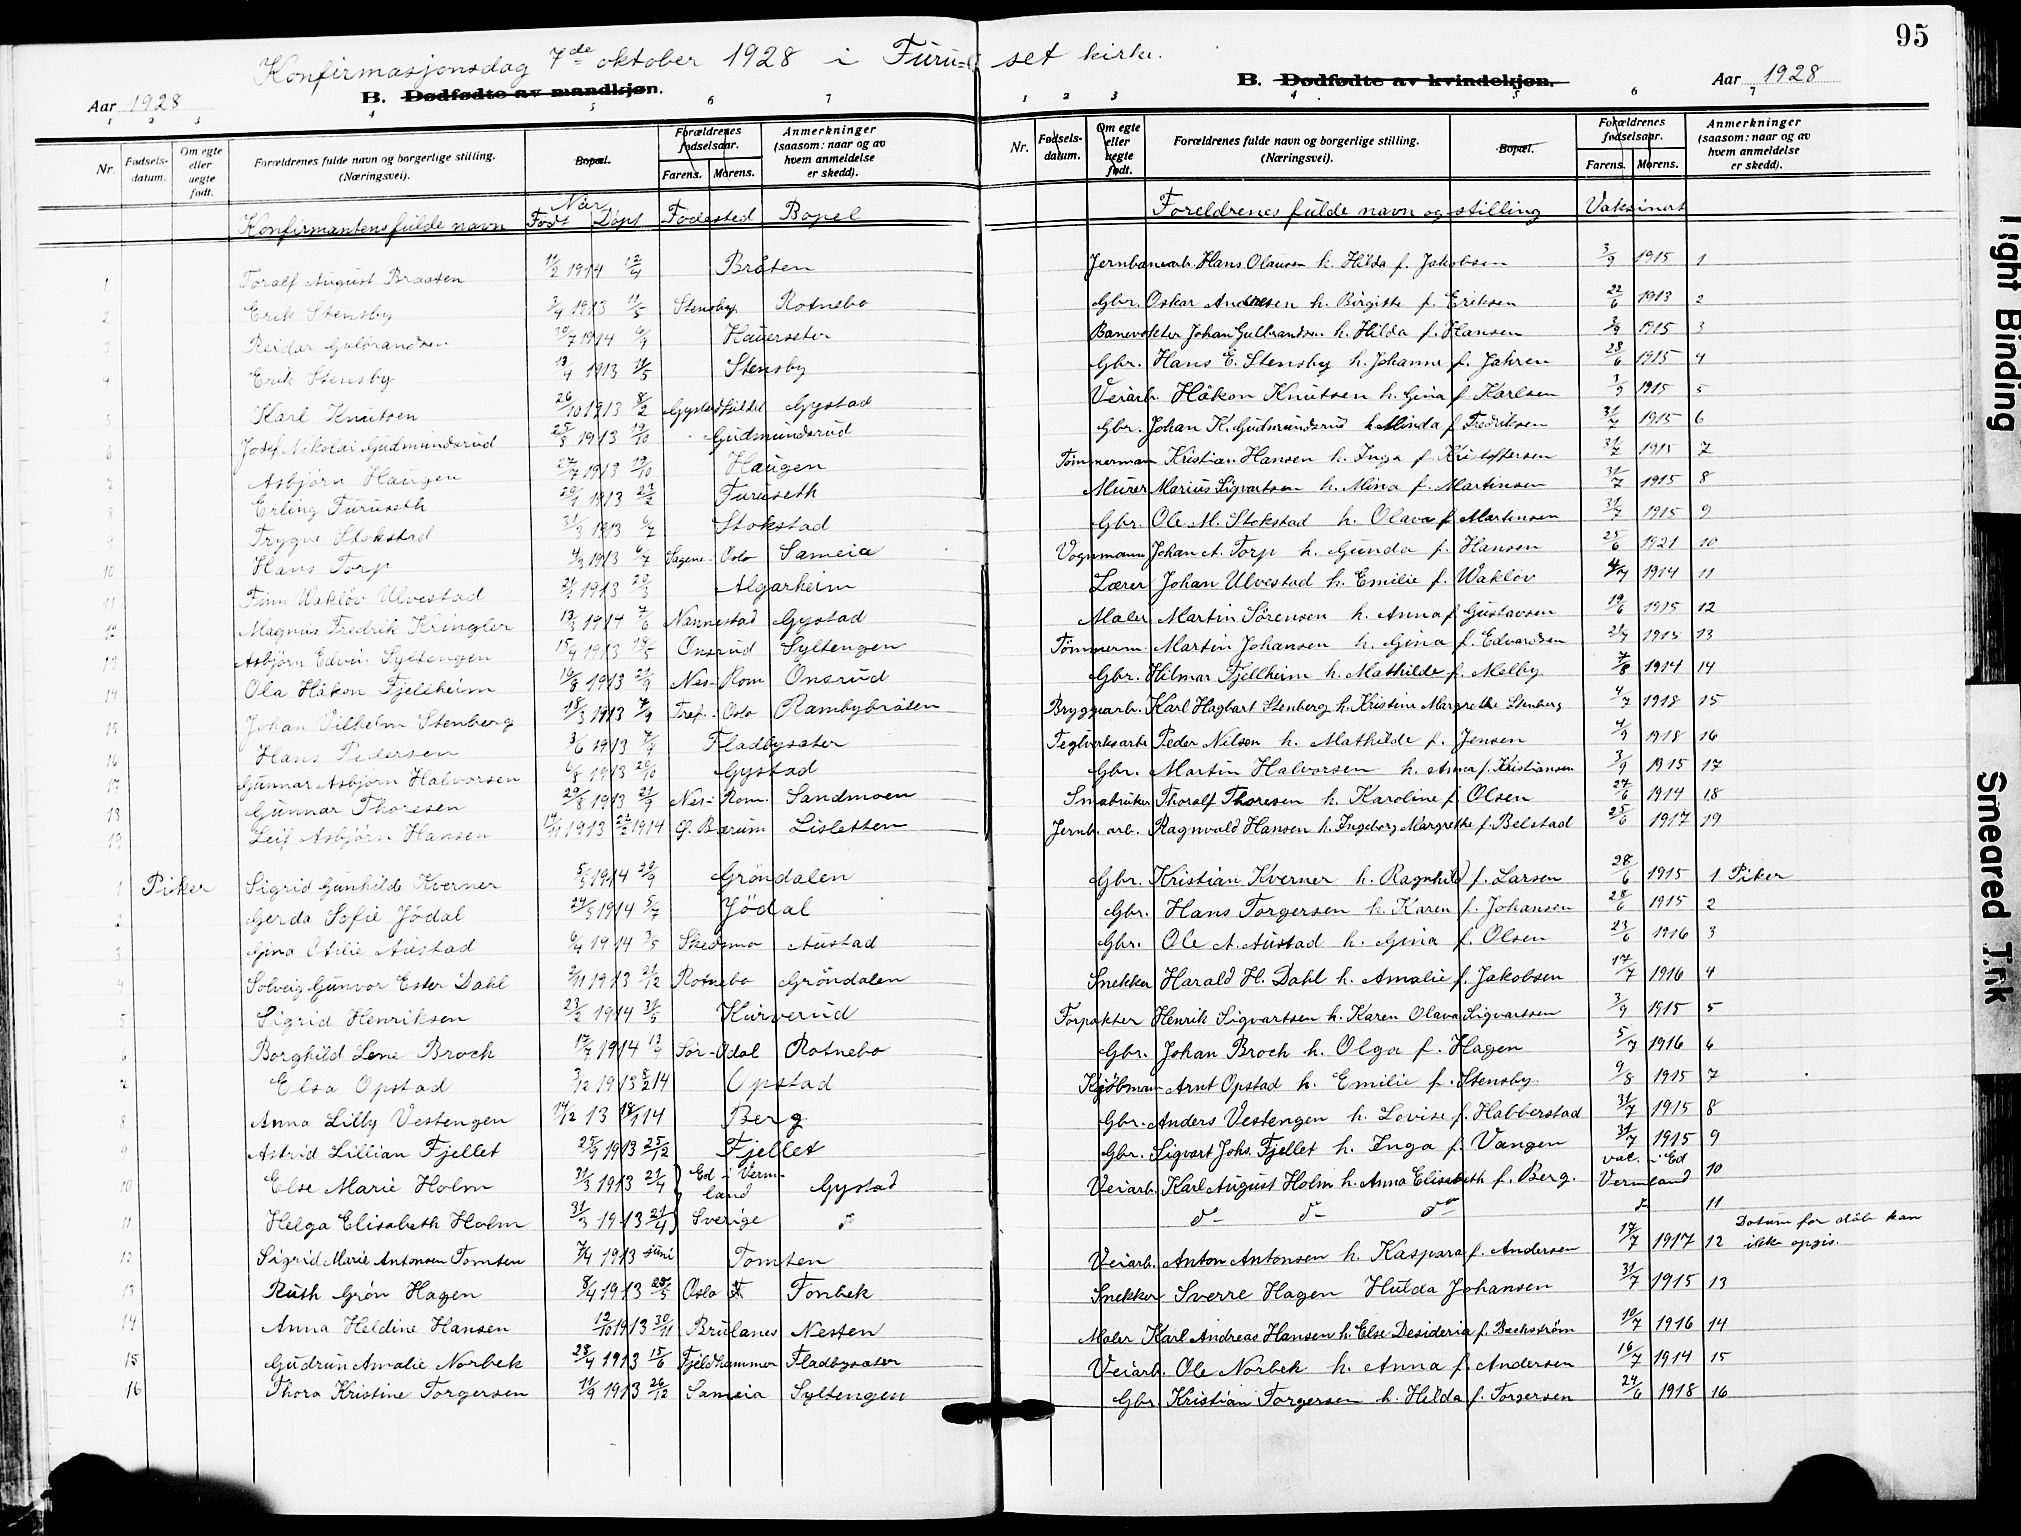 95
Konfirmasjonsdag 7de oktober 1928 i Furu= set kirke.
Aar 1928
B. Dødfødte av mandkjøn.
B. Dødfødte av kvindekjøn.
Aar 1928
1 2 3 4 5 6 7
1 2 3 4 5 6 7
Nr. Fødsels-datum. Om egte eller uegte født. Forældrenes fulde navn og borgerlige stilling. (Næringsvei). Bopæl. Forældrenes fødselsaar. Farens. Morens. Anmerkninger (saasom: naar og av hvem anmeldelse er skedd).
Nr. Fødsels-datum. Om egte eller uegte født. Forældrenes fulde navn og borgerlige stilling. (Næringsvei). Bopæl. Forældrenes fødselsaar. Farens. Morens. Anmerkninger (saasom: naar og av hvem anmeldelse er skedd).
Konfirmantens fulde navn Når Født Døpt Fødested Bopel
Foreldrenes fulde navn og stilling Vaksinert
1 Toralf August Braaten 11/2 1914 12/4 Bråten Jernbanearb. Hans Olausen h. Hilda f. Jakobsen 3/9 1915 1
2 Erik Stensby 3/4 1913 11/5 Stensby Rotnebo Gbr. Oskar Andresen h. Birgitte f. Eriksen 22/6 1913 2
3 Reidar Gulbrandsen 20/7 1914 6/9 Hauerseter Banevokter Johan Gulbrandsen h. Hilda f. Hansen 3/9 1915 3
4 Erik Stensby 13/4 1913 11/5 Stensby Gbr. Hans E. Stensby h. Johanne f. Jahren 28/6 1915 4
5 Karl Knutsen 26/10 1913 8/2 Gystad Veiarb. Håkon Knutsen h. Gina f. Karlsen 3/9 1915 5
6 Josef Nikolai Gudmundsrud 25/8 1913 19/10 Gudmundsrud Gbr. Johan K. Gudmundsrud h. Minda f. Fredriksen 31/7 1915 6
7 Asbjörn Haugen 27/7 1913 19/10 Haugen Tömmermann Kristian Hansen h. Inga f. Kristoffersen 31/7 1915 7
8 Erling Furuseth 20/1 1913 23/2 Furuseth Murer Marius Sigvartsen h. Mina f. Martinsen 31/7 1915 8
9 Trygve Stokstad 31/3 1913 6/7 Stokstad Gbr. Ole M. Stokstad h. Olava f. Martinsen 31/7 1915 9
10 Hans Torp 4/3 1913 6/7 Sagene - Oslo Sameia Vognmann Johan A. Torp h. Gunda f. Hansen 25/6 1921 10
11 Finn Wakløv Ulvestad 1913 20/3 Algarheim Lærer Johan Ulvestad h. Emilie f. Wakløv 1914 11
12 Magnus Fredrik Kringler 13/3 1914 7/6 Nannestad Gystad Maler Martin Sörensen h. Anna f. Gustavsen 19/6 1915 12
13 Asbjörn Edvin Syltengen 15/4 1913 18/5 Onsrud Syltengen Tömmerm. Martin Johansen h. Gina f. Edvardsen 1915 13
14 Ola Håkon Fjellheim 16/8 1913 21/9 Nes - Rom Onsrud Gbr. Hilmar Fjellheim h. Mathilde f. Melby 7/8 1914 14
15 Johan Vilhelm Stenberg 18/3 1913 7/9 Tref. - Oslo Rambybråten Bryggearb. Karl Hagbart Stenberg h. Kristine Margrethe Stenberg 4/7 1918 15
16 Hans Pedersen 3/6 1913 7/9 Fladbyseter Teglverksarb. Peder Nilsen h. Mathilde f. Jensen 4/9 1918 16
17 Gunnar Asbjörn Halvorsen 6/8 1913 26/10 Gystad Gbr. Martin Halvorsen h. Anna f. Kristiansen 3/9 1915 17
18 Gunnar Thoresen 20/8 1913 21/9 Nes - Rom. Sandmoen Småbruker Thoralf Thoresen h. Karoline f. Olsen 27/6 1914 18
19 Leif Asbjörn Hansen 1913 22/2 1914 Ö. Bærum Lisletten Jernb. arb. Ragnvald Hansen h. Ingeborg Margrethe f. Belstad 25/6 1917 19
1 Piker Sigrid Gunhilde Kverner 5/5 1914 20/9 Gröndalen Gbr. Kristian Kverner h. Ragnhild f. Larsen 28/6 1915 1 Piker
2 Gerda Sofie Jödal 24/5 1914 5/7 Jödal Gbr. Hans Torgersen h. Karen f. Johansen 28/6 1915 2
3 Gina Otilie Austad 6/4 1914 3/5 Skedsmo Austad Gbr. Ole A. Austad h. Gina f. Olsen 23/6 1916 3
4 Solveig Gunvor Ester Dahl 2/11 1913 21/12 Rotnebo Gröndalen Snekker Harald H. Dahl h. Amalie f. Jakobsen 17/7 1916 4
5 Sigrid Henriksen 23/2 1914 31/5 Kurverud Forpakter Henrik Sigvartsen h. Karen Olava Sigvartsen 3/9 1915 5
6 Borghild Lene Broch 1914 13/9 Sör-Odal Rotnebo Gbr. Johan Broch h. Olga f. Hagen 5/7 1916 6
7 Elsa Opstad 3/12 1913 8/2 14 Opstad Kjöbmann Arnt Opstad h. Emilie f. Stensby 9/8 1915 7
8 Anna Lilly Vestengen 14/12 13 18/1 14 Berg Gbr. Anders Vestengen h. Lovise f. Habberstad 31/7 1915 8
9 Astrid Lillian Fjellet 25/9 1913 25/12 Fjellet Gbr. Sigvart Johs. Fjellet h. Inga f. Vangen 31/7 1915 9
10 Else Marie Holm 31/3 1913 21/4 Ed i Verm-land Gystad Veiarb. Karl August Holm h. Anna Elisabeth f. Berg. vac. i Ed Vermland 10
11 Helga Elisabeth Holm 31/3 1913 21/4 Sverige do do do do do 11
12 Sigrid Marie Antonsen Tomten 7/4 1913 juni Tomten Veiarb. Anton Antonsen h. Kaspara f. Andersen 17/7 1917 12 Datum for dåb kan ikke opgis.
13 Ruth Grön Hagen 8/4 1913 25/5 Oslo Fonbek Snekker Sverre Hagen Hulda Johansen 31/7 1915 13
14 Anna Heldine Hansen 12/10 1913 30/11 Brulanes Nesten Maler Karl Andreas Hansen h. Else Desideria f. Backström 10/7 1916 14
15 Gudrun Amalie Norbek 28/4 1913 15/6 Fjeldhammer Fladbyseter Veiarb. Ole Norbek h. Anna f. Andersen 16/7 1914 15
16 Thora Kristine Torgersen 11/9 1913 26/12 Sameia Syltengen Gbr. Kristian Torgersen h. Hilda f. Torgersen 24/6 1918 16
Tight Binding
Smeared Ink